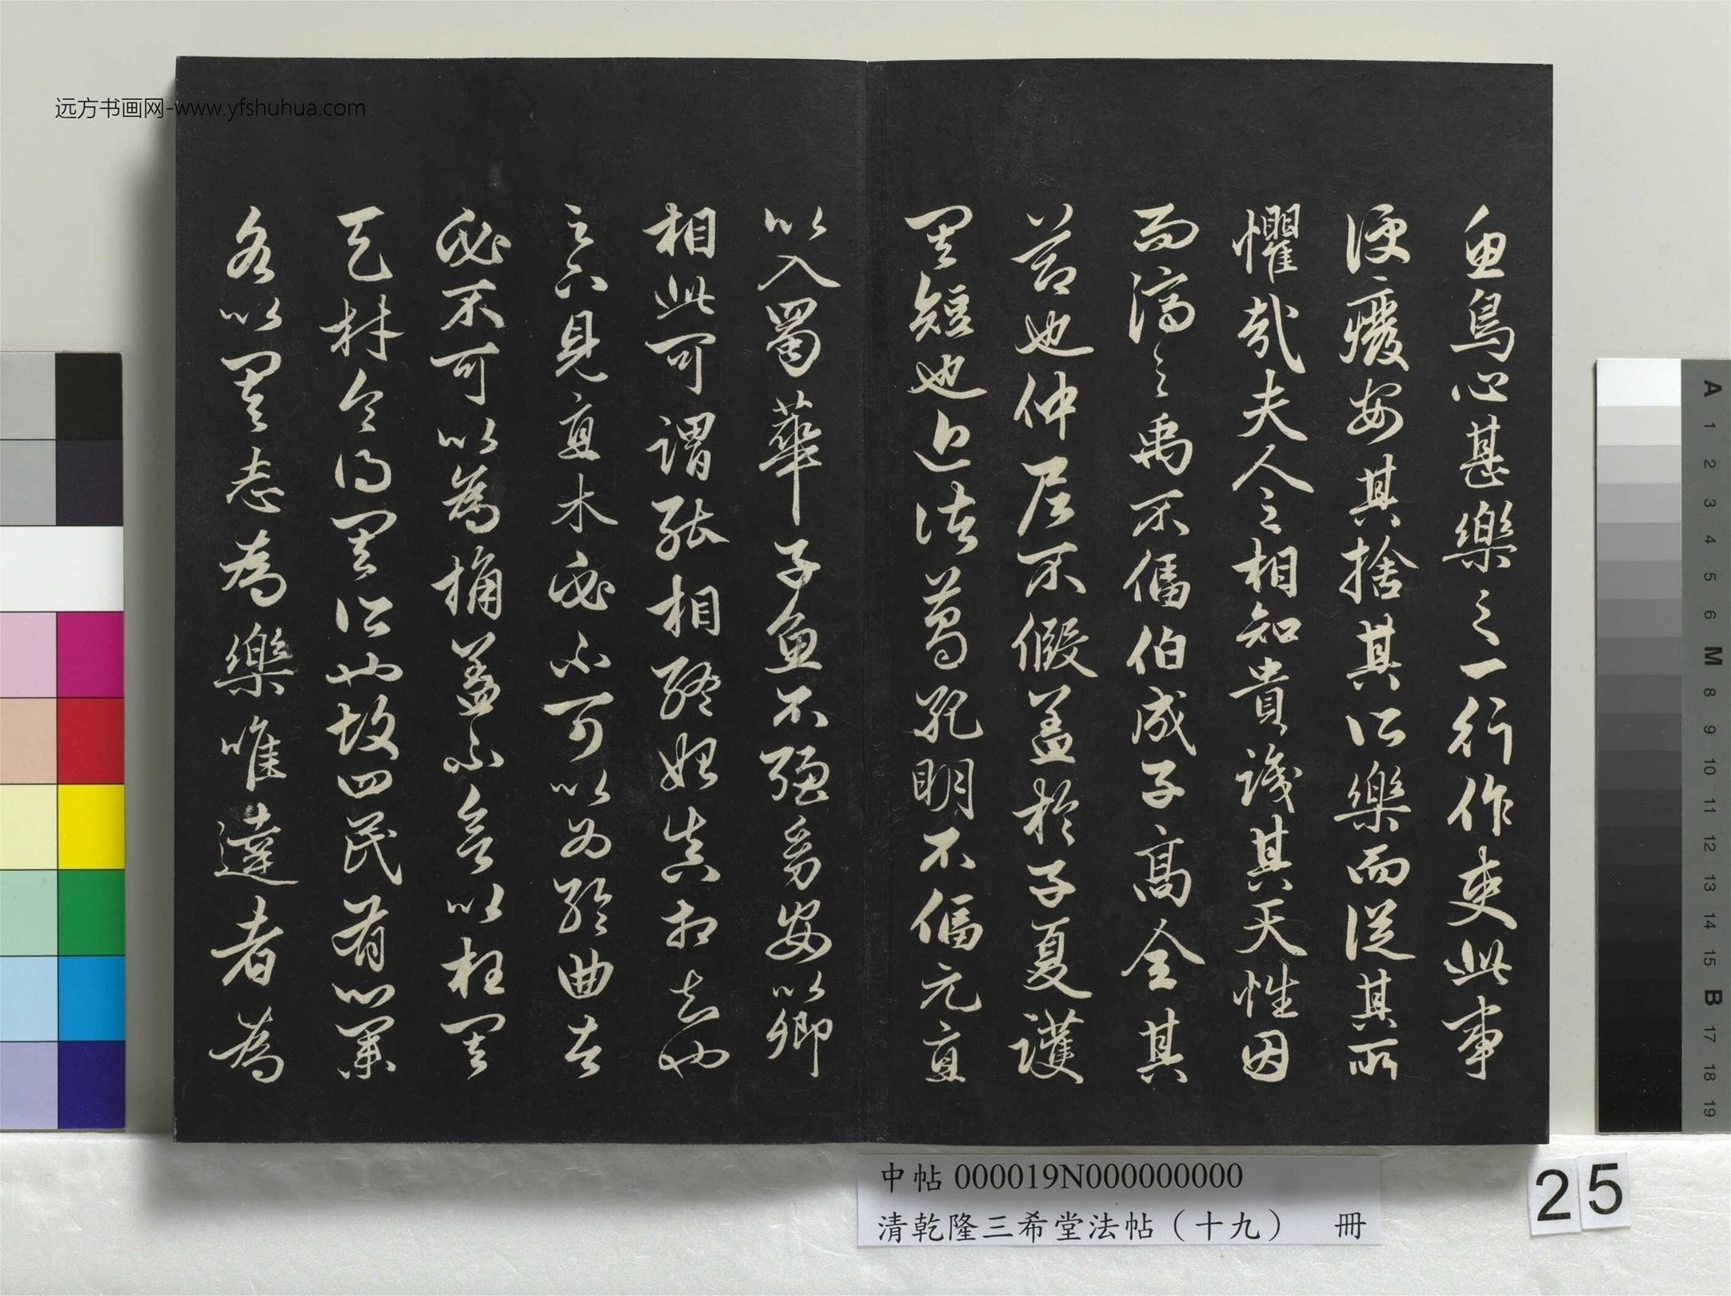 魚鳥心甚樂之一行作吏此事
便廢安其捨其所樂而從其所
懼哉夫人之相知貴識其天性因
而濟之禹不偪伯成子高全其
節也仲尼不假蓋於子夏護
其短也近諸葛孔明不偪元直
以入蜀華子魚不強幼安以卿
相此可謂能相終始真相知也
足下見直木必不可以為輪曲者
必不可以為桷蓋不欲以枉其
天材令得其所也故四民有業
各以其志為樂唯達者為
远方书画网-www.yfshuhua.com
中帖 000019N000000000
清乾隆三希堂法帖（十九） 冊
25
A
1
2
3
4
5
6
M
8
9
10
11
12
13
14
15
B
17
18
19